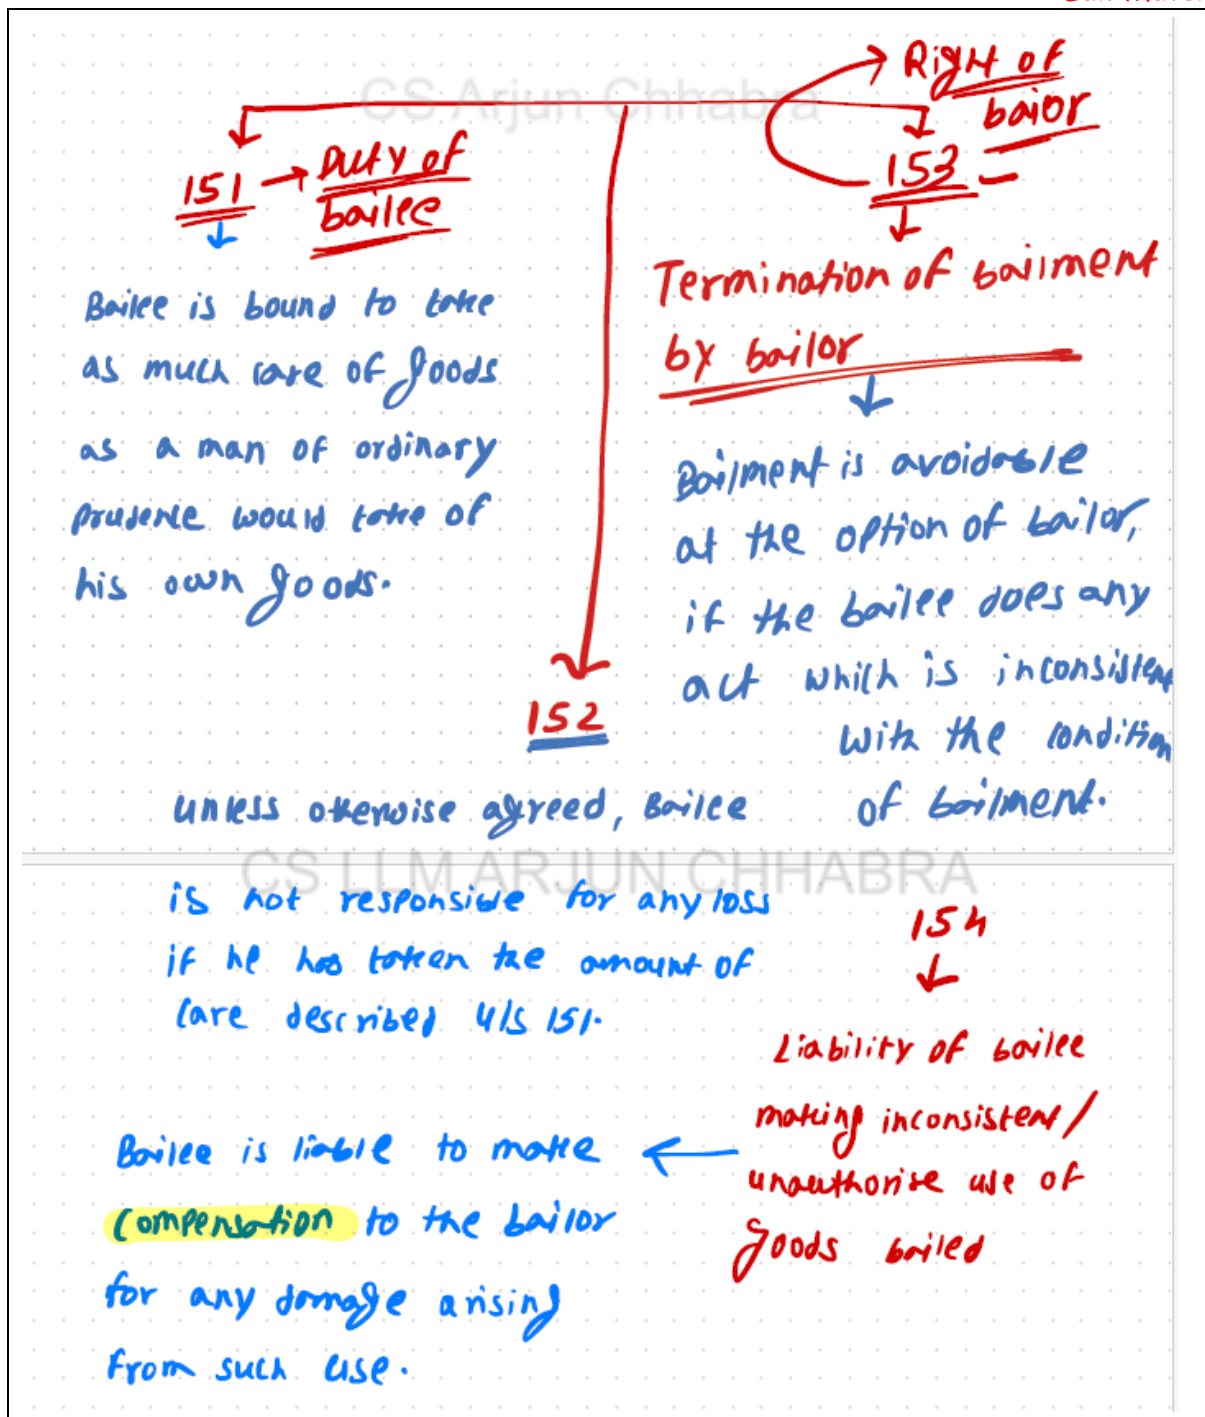 CS Arjun Chhabra
Right of
bailor
151 → Duty of
bailee
153 –
Bailee is bound to take
as much care of goods
as a man of ordinary
prudence would take of
his own goods.
Termination of bailment
by bailor
Bailment is avoidable
at the option of bailor,
if the bailee does any
act which is inconsistent
with the condition
of bailment.
152
unless otherwise agreed, Bailee
CS LLM ARJUN CHHABRA
is not responsible for any loss
if he has taken the amount of
care described u/s 151.
154
Liability of bailee
making inconsistent/
unauthorise use of
goods bailed
Bailee is liable to make
compensation to the bailor
for any damage arising
from such use.